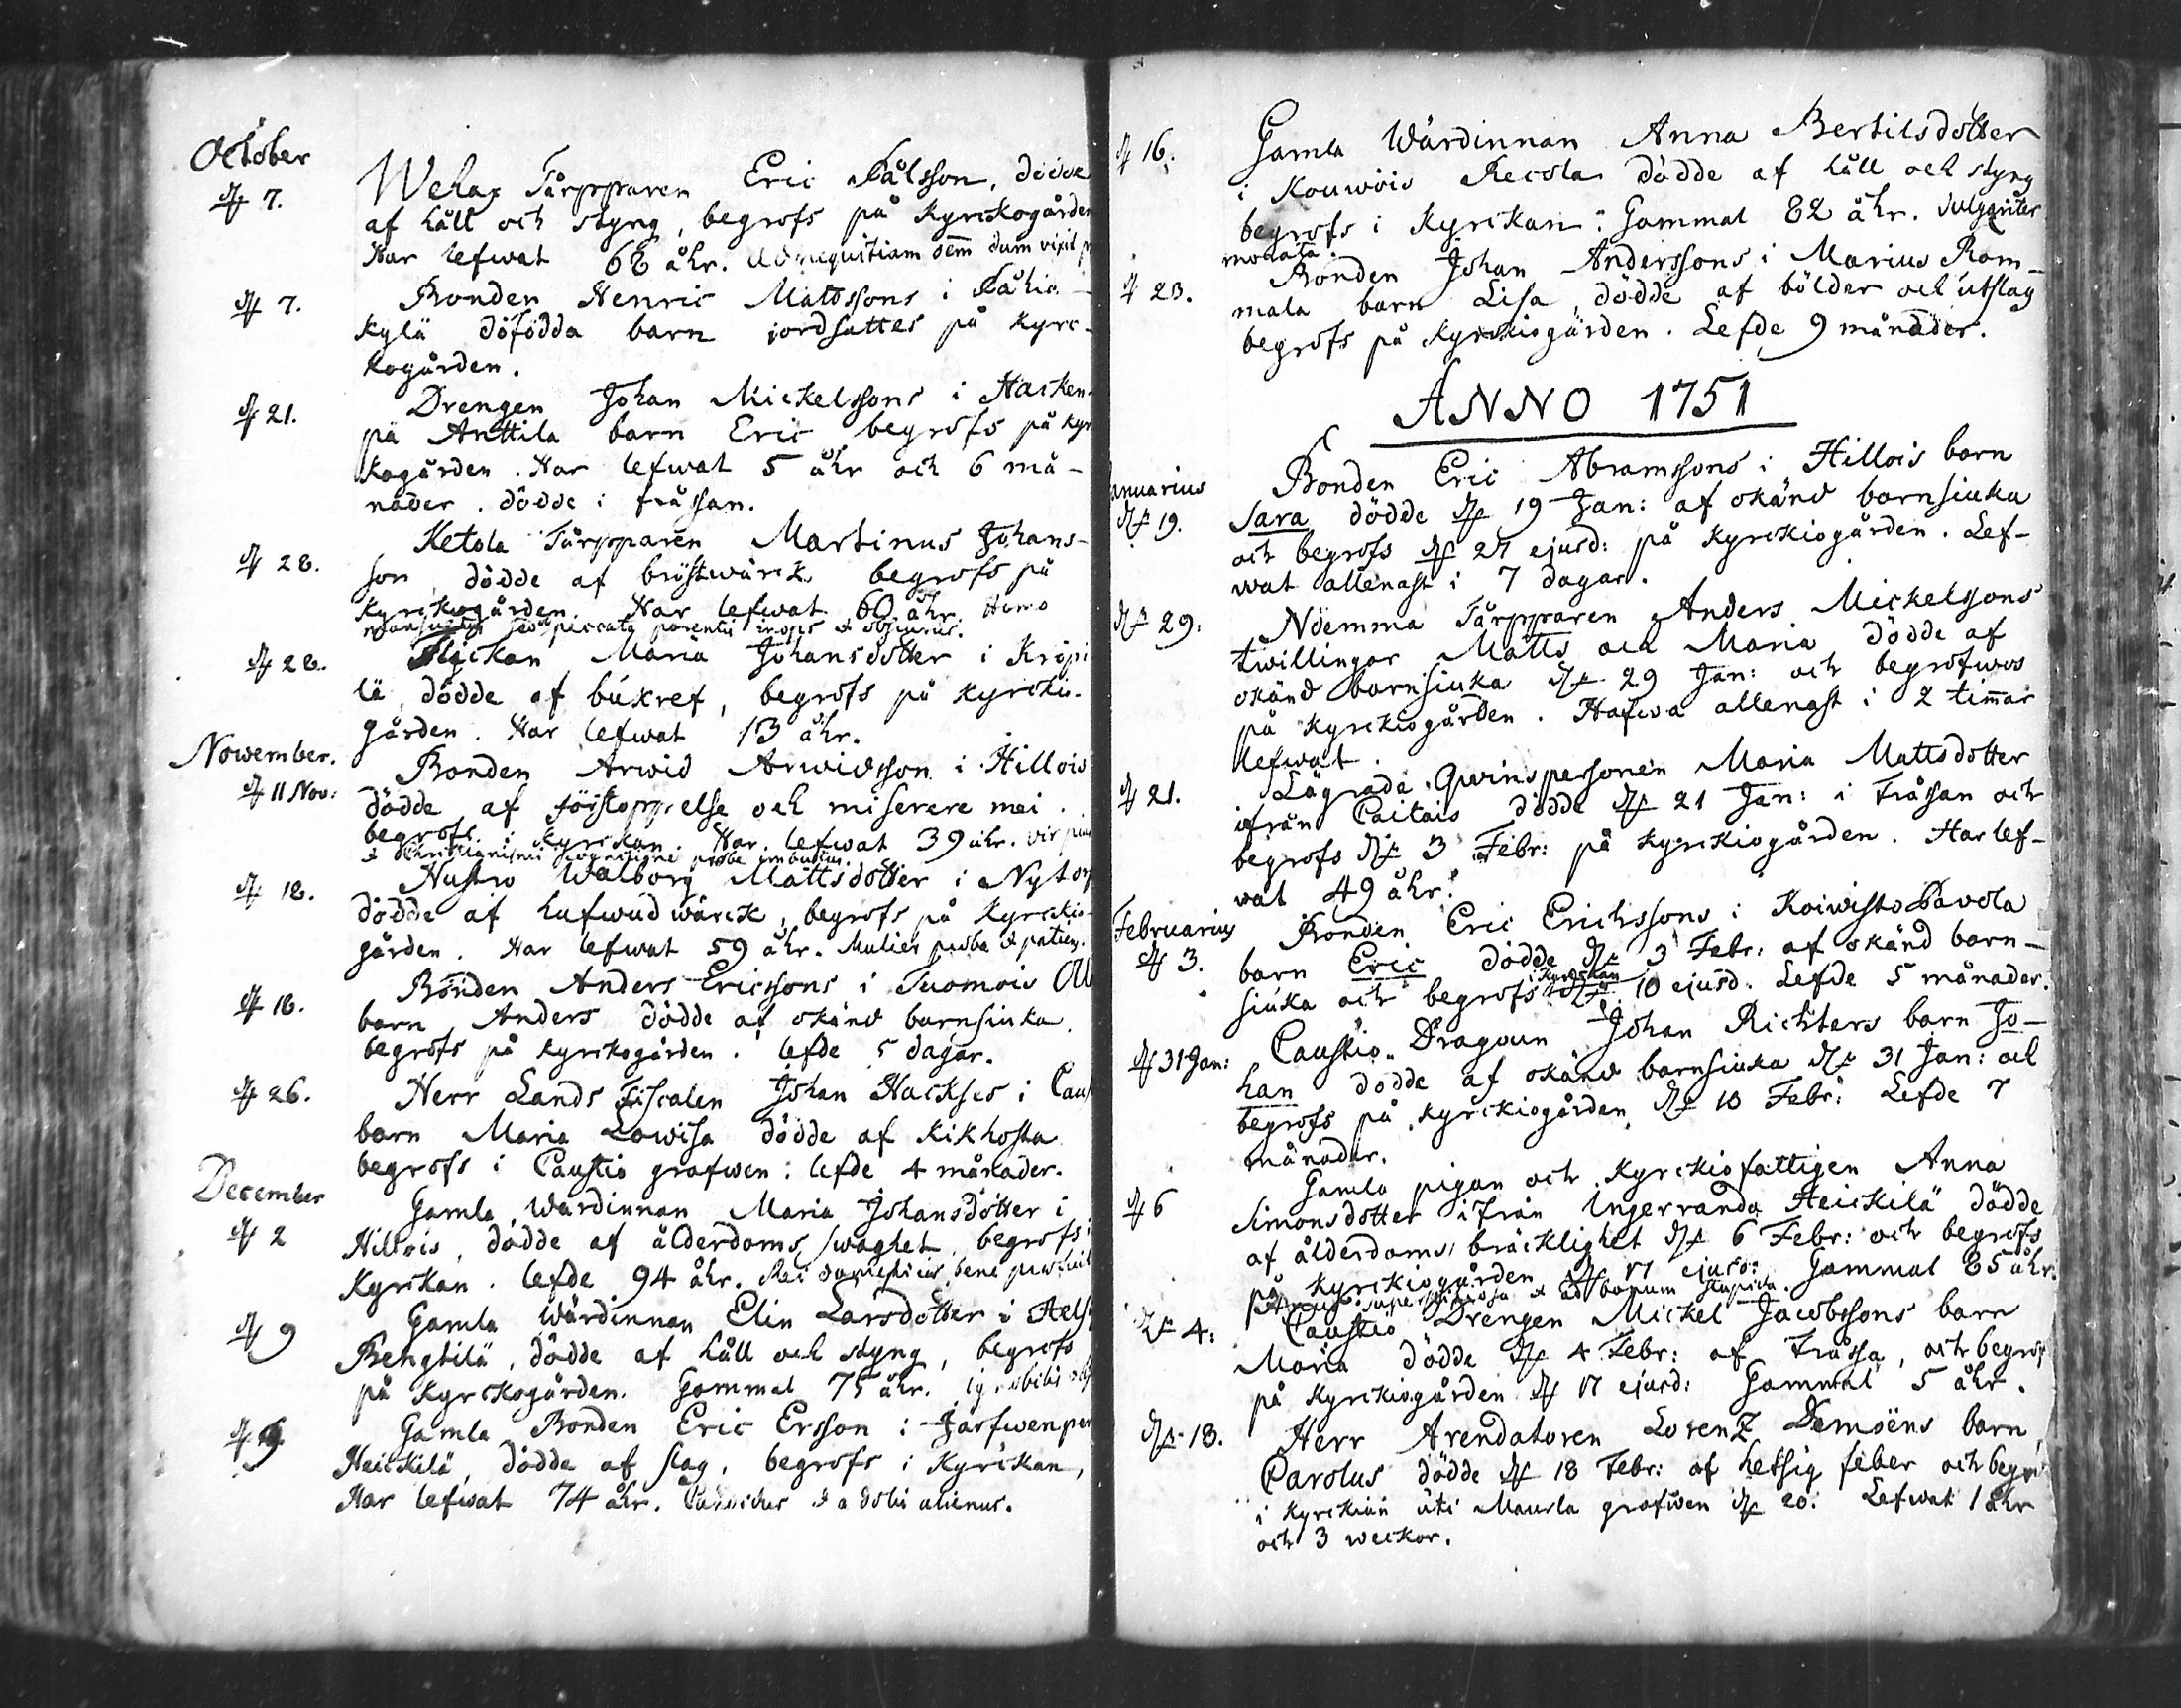 October
d 7. Wehas Tårpparen Eric Påhlsson, dödde
af håll och styng, begrofs på Kyrckogården
Har lefwat 68 åhr. dum vixit
d 7. Bonden Henric Mattssons i Påhia-
kylä döfödda barn jordsattes på Kyrc-
kogården.
d 21. Drengen Johan Mickelssons i Hacken-
pä Anttila barn Eric begrofs på Kyr
kogården. Har lefwat 5 åhr och 6 må-
nader. dödde i fråssan.
d 28. Ketola Tårpparen Martinus Johans-
son, dödde af bröstwärck begrofs på
Kyrckogården. Har lefwat 60 åhr. Homo
sed peccata parentis inops et obscurus.
d 28. Flickan Maria Johansdotter i Kröpi
lä dödde af bukref, begrofs på Kyrckio-
gården. Har lefwat 13 åhr.
Nowember.
d 11 Nov: Bonden Arwid Arwidsson i Hillois
dödde af förstoppelse och miserere mei.
begrofs i Kyrckan. Har lefwat 39 åhr. vir pius
et Christianismi probe imbutus.
d 18. Hustro Walborg Mattsdotter i Nytorp
dödde af hufwudwärck, begrofs på Kyrckio-
gården. Har lefwat 59 åhr. Mulier proba et patien.
d 18. Bonden Anders Ericssons i Tuomois
barn Anders dödde af okänd barnsiuka.
begrofs på Kyrckogården. lefde 5 dagar.
d 26. Herr Lands Fiscalen Johan Hackses i Caus
barn Maria Lowisa dödde af kikhosta
begrofs i Caustio grafwen: lefde 4 månader.
December
d 2 Gamla Wärdinnan Maria Johansdotter i
Hillois, dödde af ålderdoms swaghet, begrofs i
Kyrckan. lefde 94 åhr. Rei bene
d 9 Gamla Wärdinnan Elin Larsdotter i Hels
Benghtilä, dödde af håll och styng, begrofs
på Kyrckogården. Gammal 75 åhr.
d 9 Gamla Bonden Eric Ersson i Jarfwenper
Heickilä, dödde af slag, begrofs i Kyrckan,
Har lefwat 74 åhr. Candidus et a dolis alienus.
d 16. Gamla Wärdinnan Anna Bertilsdotter
i Kouwois Recola dödde af håll och styng
begrofs i Kyrckan: Gammal 82 åhr. vulgariter
morata.
d 23. Bonden Johan Anderssons i Marius Ram-
mala barn Lisa dödde af bölder och utslag
begrofs på Kyrckiogården. Lefde 9 månader.
ANNO 1751
anuarius
d 19. Bonden Eric Abramssons i Hillois barn
Sara dödde d 19 Jan: af okänd barnsiuka
och begrofs d 27 ejusd: på Kyrckiogården. Lef-
wat allenast i 7 dagar.
d 29. Nöemma Tårpparen Anders Mickelssons
twillingar Matts och Maria dödde af
okänd barnsiuka d 29 Jan: och begrofwos
på Kyrckiogården. Hafwa allenast i 2 timar
lefwat.
d 21. Lägrada Qwinspersonen Maria Mattsdotter
ifrån Caitais dödde d 21 Jan: i Fråssan och
begrofs d 3 Febr: på Kyrckiogården. Har lef-
wat 49 åhr.
Februarius
d 3. Bonden Eric Erichssons i Koiwisto Pavola
barn Eric dödde d 3 Febr: af okänd barn-
siuka och begrofs i Kyrckan d 10 ejusd. Lefde 5 månader.
d 31 Jan: Caustio Dragoun Johan Richters barn Jo-
han dödde af okänd barnsiuka d 31 Jan: och
begrofs på Kyrckiogården d 10 Febr: Lefde 7
månader.
d 6 Gamla pigan och Kyrckiofattigen Anna
Simonsdotter ifrån Ingerranda Heickilä dödde
af ålderdoms bräcklighet d 6 Febr: och begrofs
på Kyrckiogården d 17 ejusd: Gammal 85 åhr.
superstitiosa et ad bonum stupida.
d 4: Caustio Drengen Mickel Jacobssons barn
Maria dödde d 4 Febr: af Fråssa, och begrof
på Kyrckiogården d 17 ejusd: Gammal 5 åhr.
d 18. Herr Arendatoren Lorentz Demoëns barn
Carolus dödde d 18 Febr: af hetsig feber och begro
i Kyrckian uti Maurla grafwen d 20: Lefwat 1 åhr
och 3 weckor.